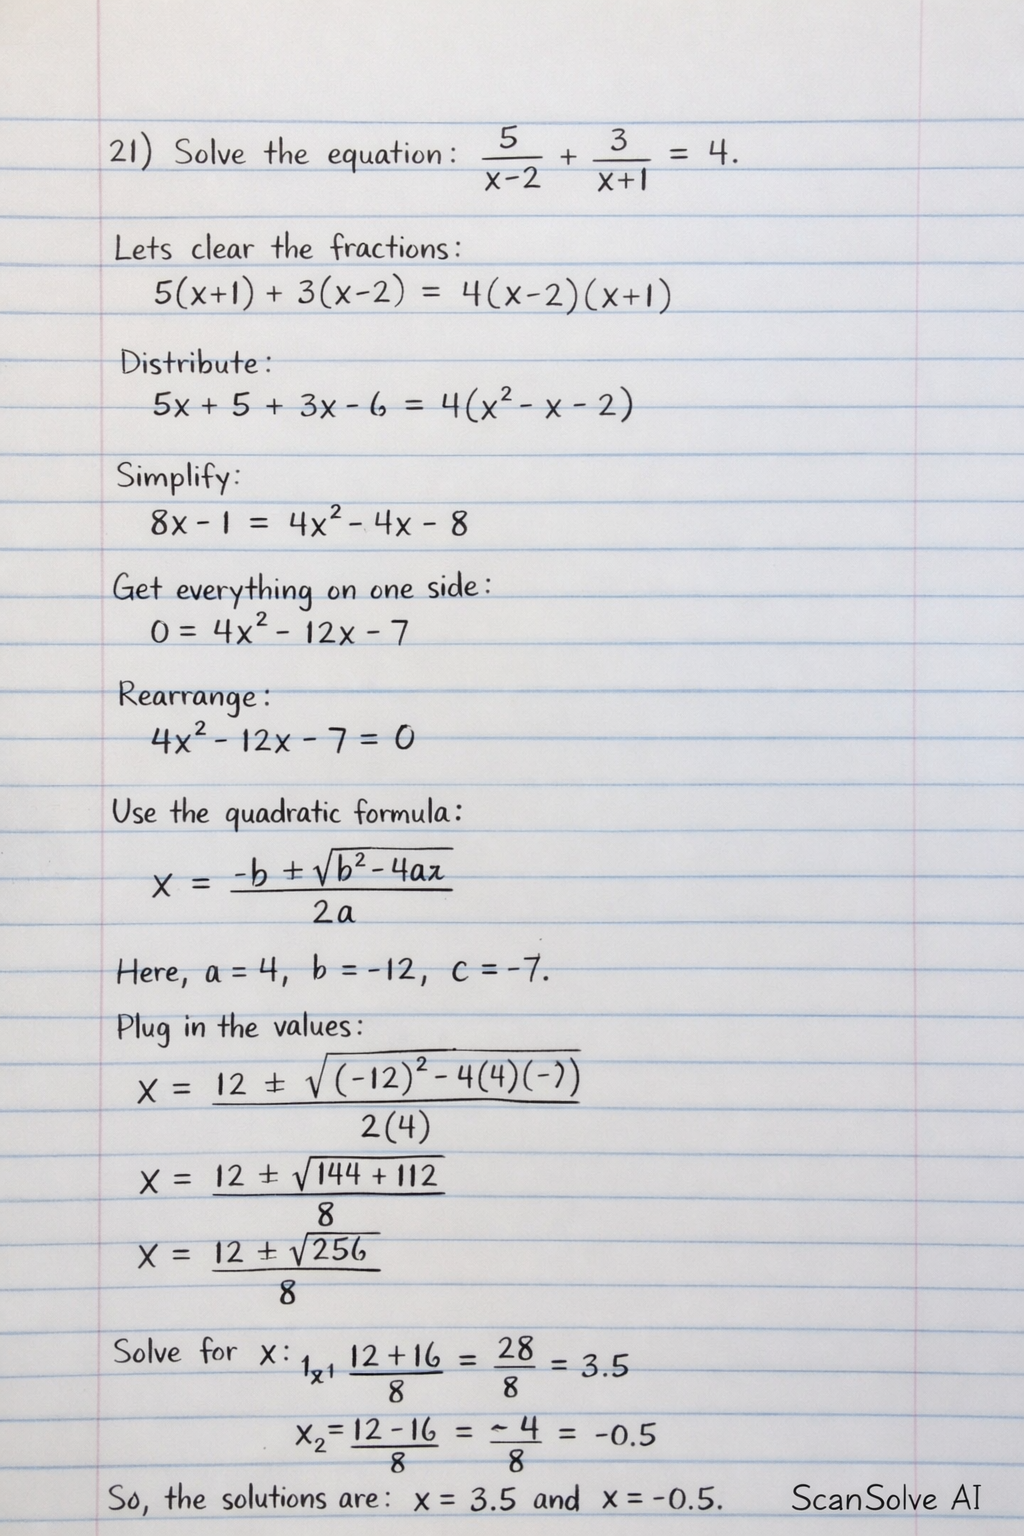 21) Solve the equation: 5/(x-2) + 3/(x+1) = 4.
Lets clear the fractions:
5(x+1) + 3(x-2) = 4(x-2)(x+1)
Distribute:
5x + 5 + 3x - 6 = 4(x² - x - 2)
Simplify:
8x - 1 = 4x² - 4x - 8
Get everything on one side:
0 = 4x² - 12x - 7
Rearrange:
4x² - 12x - 7 = 0
Use the quadratic formula:
x = (-b ± √(b² - 4az))/(2a)
Here, a = 4, b = -12, c = -7.
Plug in the values:
x = (12 ± √((-12)² - 4(4)(-7)))/(2(4))
x = (12 ± √(144 + 112))/8
x = (12 ± √256)/8
Solve for x: (12+16)/8 = 28/8 = 3.5
x₂ = (12-16)/8 = -4/8 = -0.5
So, the solutions are: x = 3.5 and x = -0.5.
ScanSolve AI